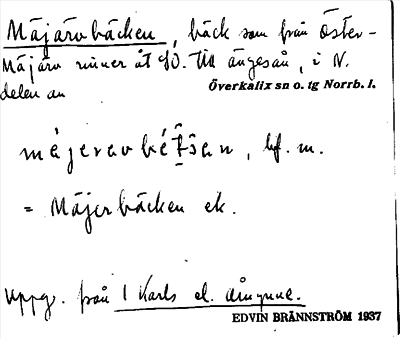 Mäjärvbäcken, bäck som från Öster-
Mäjärv rinner åt SO. till ängesån, i N.
delen av Överkalix sn o. tg Norrb. l.
májeravbét̂šan, bf. m.
= Mäjerbäcken ek.
Uppg. från I Karls el.
EDVIN BRÄNNSTRÖM 1937